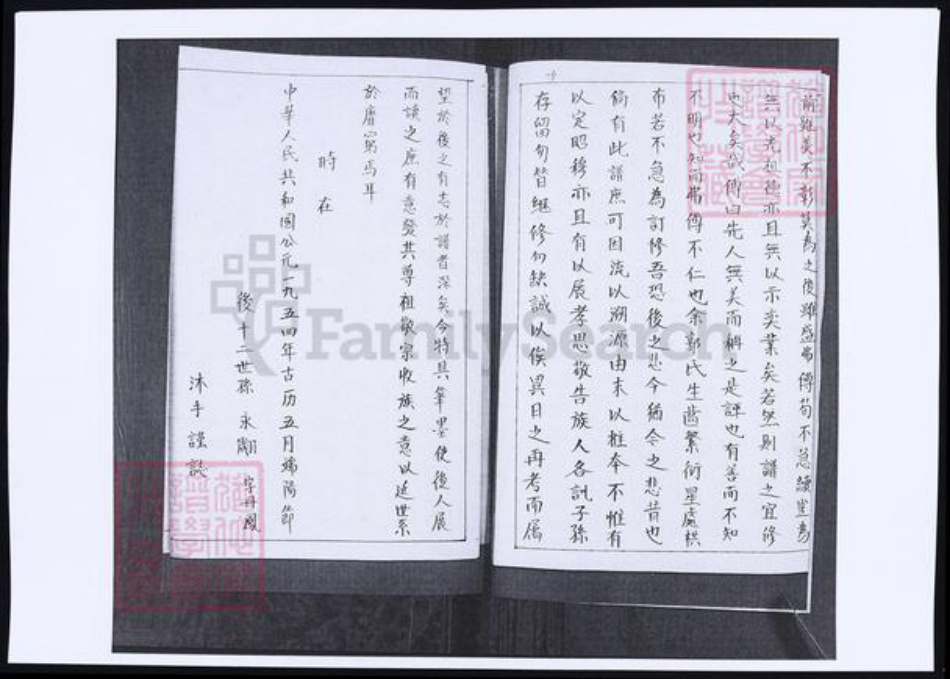 前雖美不彰莫為之後雖盛弗傳苟不急續豈為
無以光祖德亦且無以示奕業矣若然則譜之宜修
也大矣哉傳曰先人無美而稱之是誣也有善而不知
不明也知而弗傳不仁也余鄭氏生齒繁衍星處棋
布若不急為訂修吾恐後之悲今猶今之悲昔也
倘有此譜庶可因流以溯源由末以推本不惟有
以定昭穆亦且有以展孝思敬告族人各訊子孫
存留勿替繼修勿缺誠以俟異日之再考而屬
望於後之有志於譜者深矣今特具筆墨使後人展
而讀之庶有意發其尊祖敬宗收族之意以延世系
於靡窮焉耳
時在
中華人民共和國公元一九五四年古历五月端陽節
後十二世孫 永翽 字丹鳳
沐手謹誌
FamilySearch